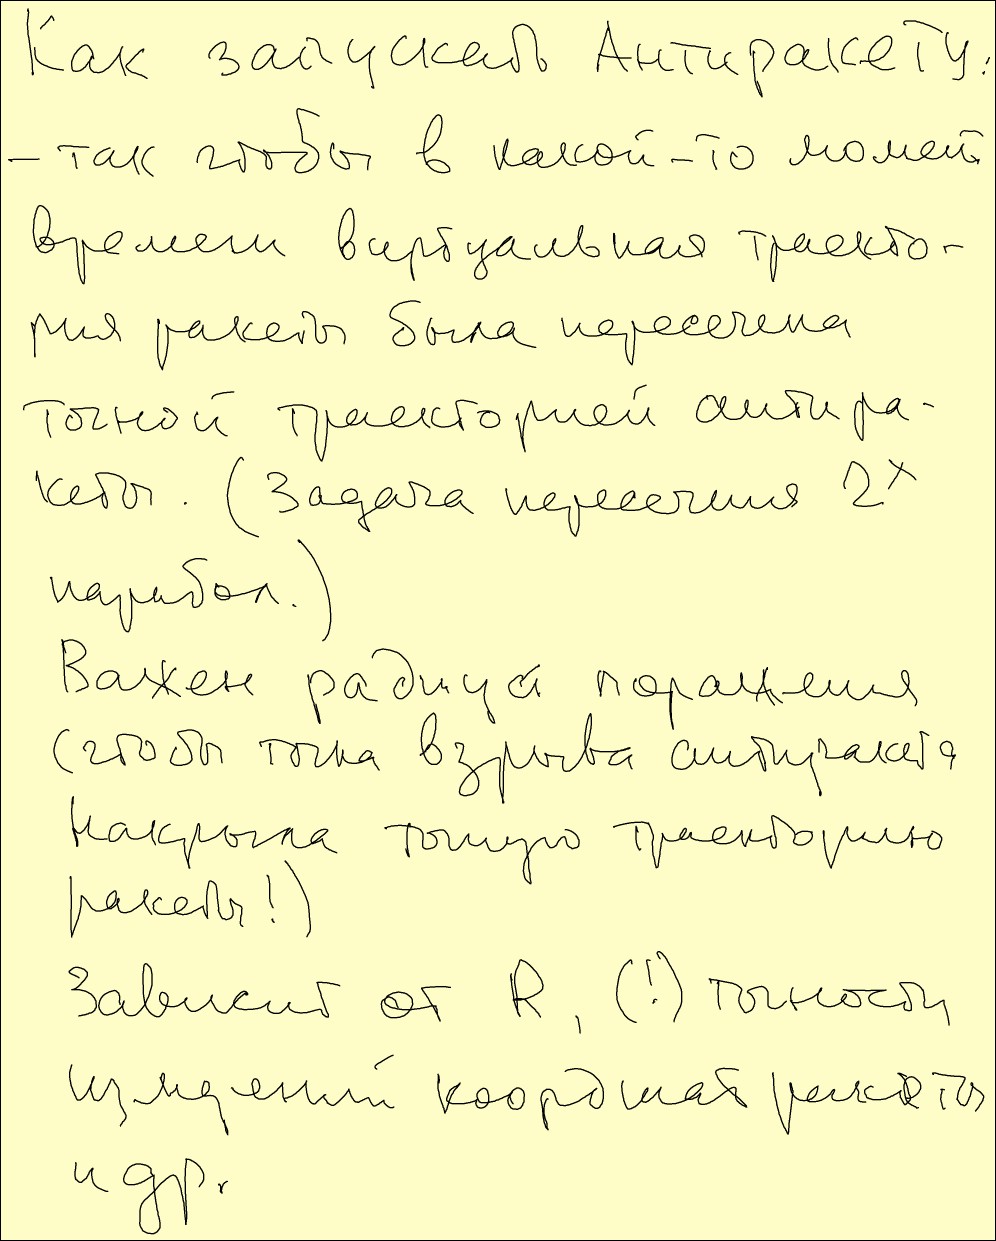 Как запускать Антиракету:
– так чтобы в какой-то момент
времени виртуальная траекто-
рия ракеты была пересечена
точной траекторией антира-
кеты. (Задача пересечения 2х
парабол.)
Важен радиус поражения
(чтобы точка взрыва антиракеты
накрыла точную траекторию
ракеты!)
Зависит от R, (!) точности
измерений координат ракеты
и др.